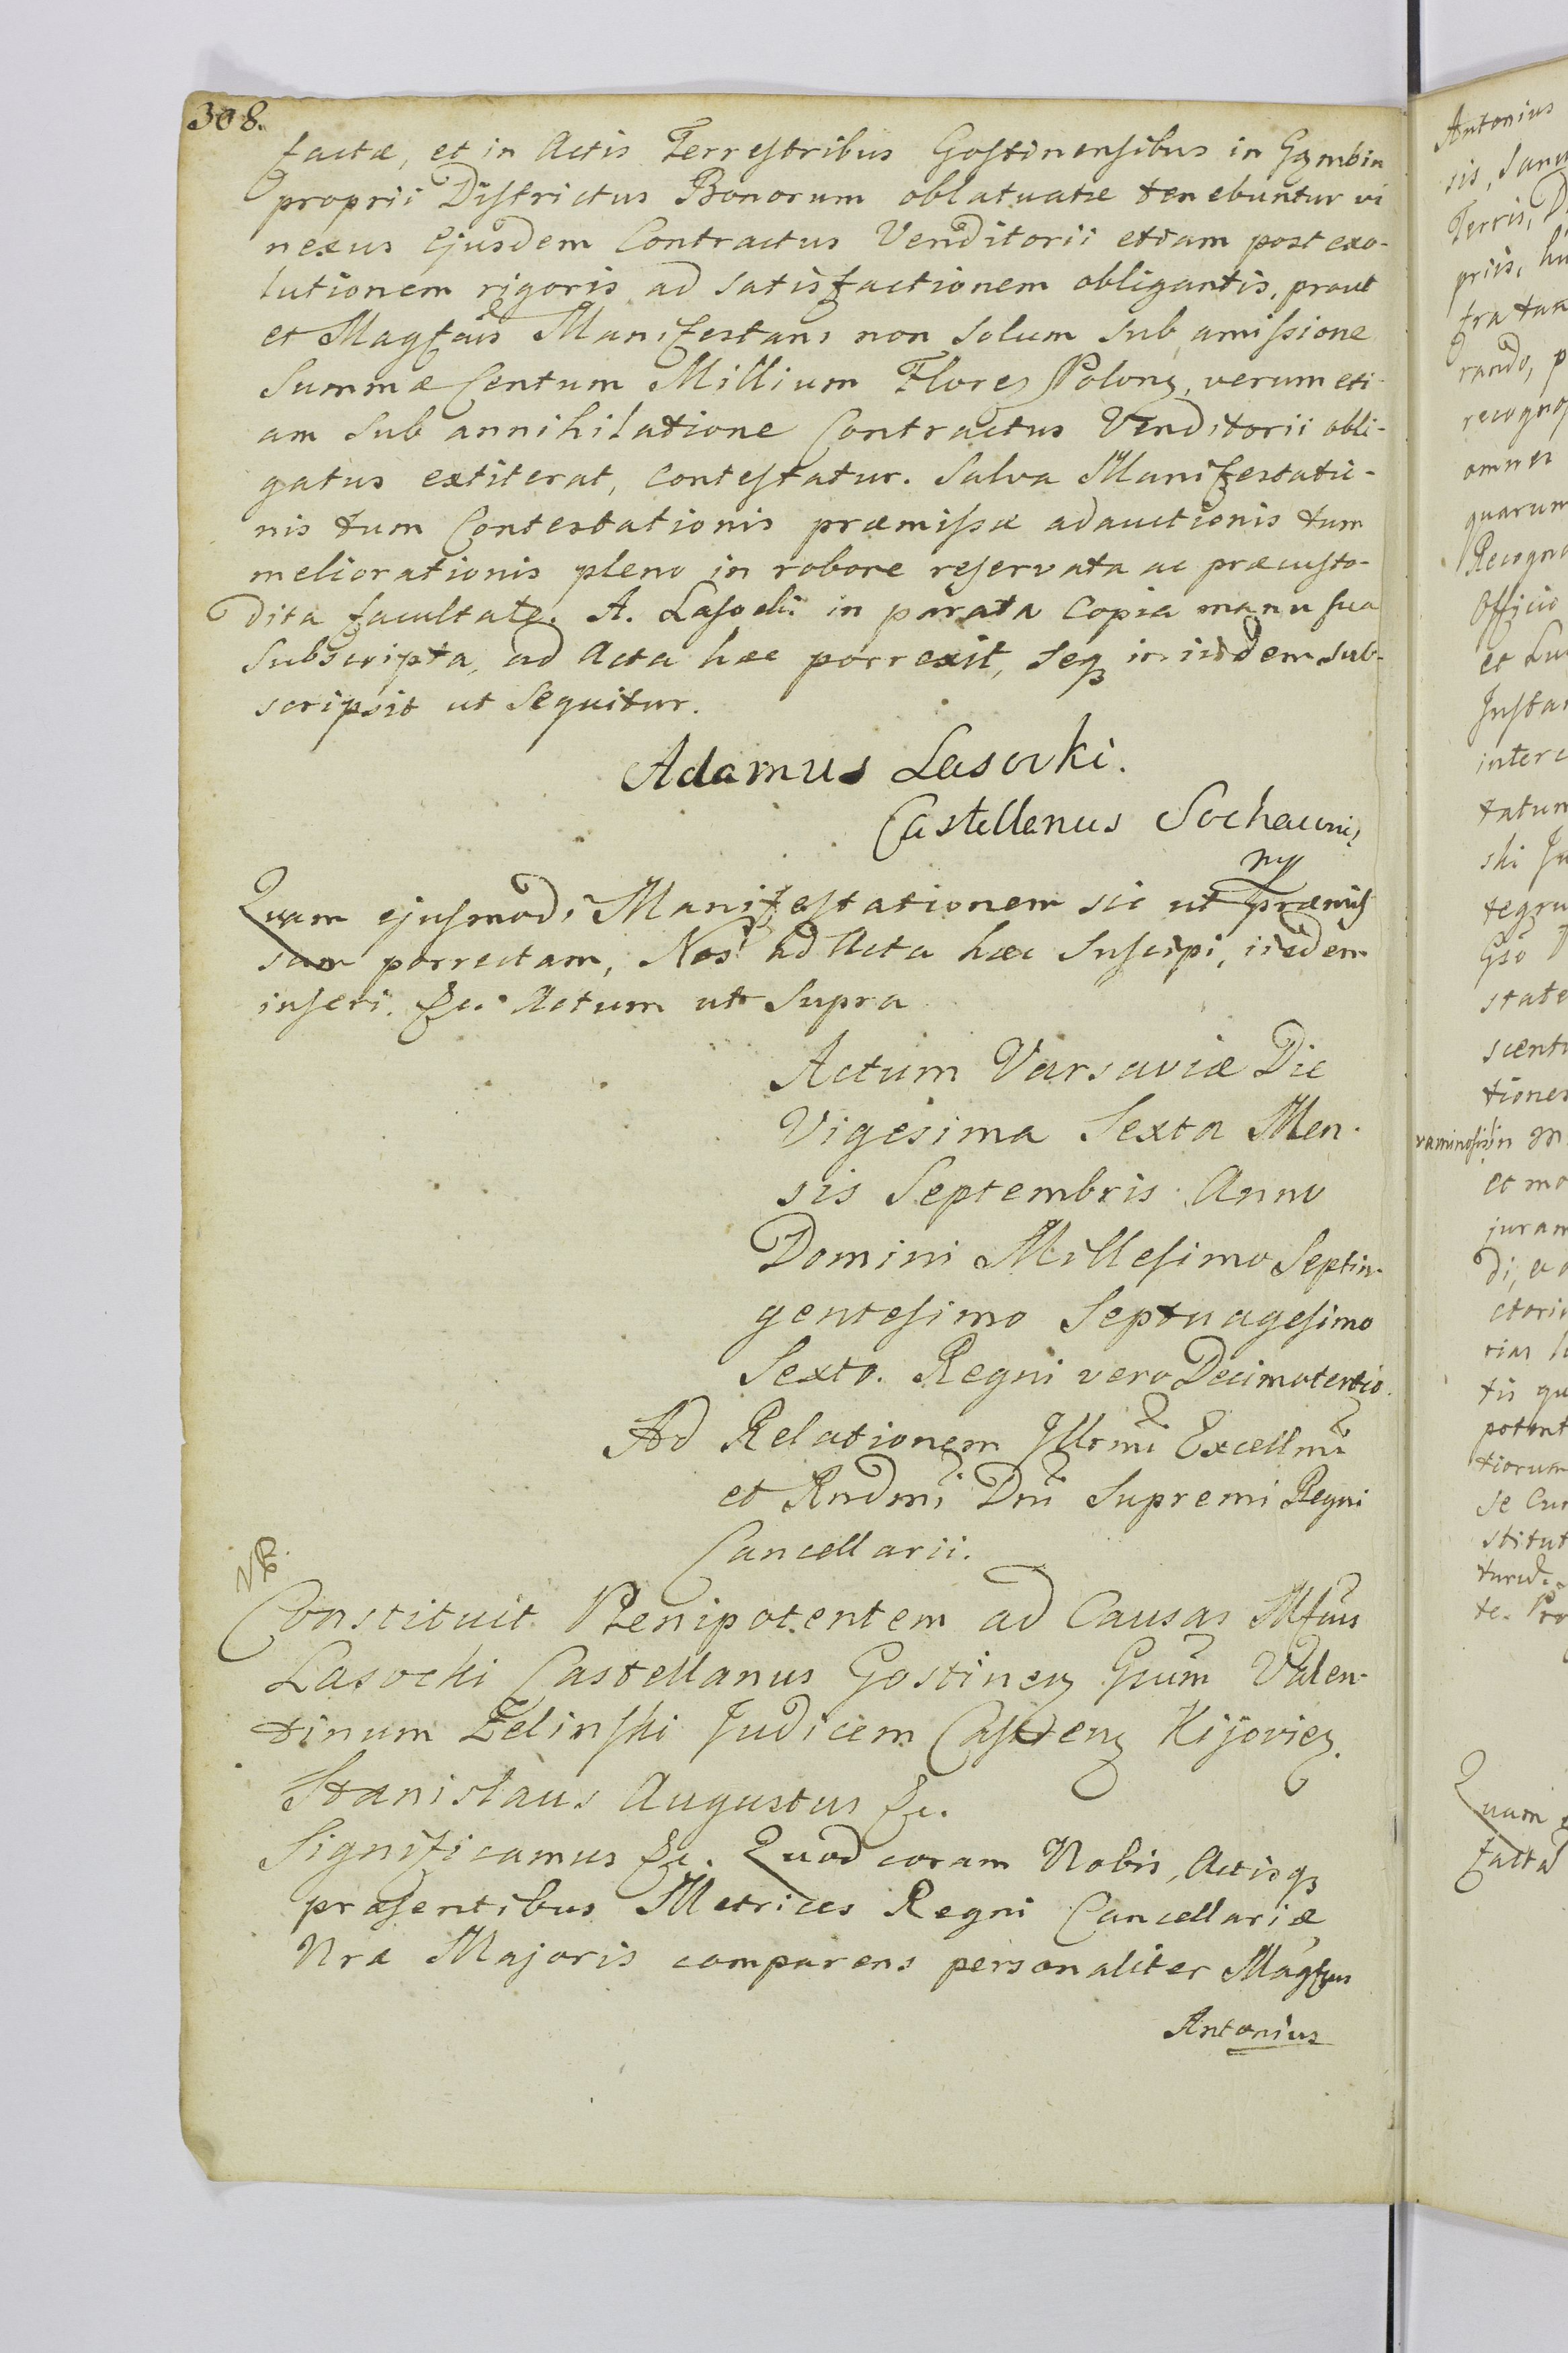 308.
factæ, et in Actis Terrestribus Gostinensibus in Gąmbin
proprii Districtus Bonorum oblatuatæ tenebuntur vi
nexus ejusdem Contractus Venditorii etiam post exo-
lutionem rigoris ad satisfactionem obligantis, prout
et Magfcus Manifestans non solum sub amissione
Summæ Centum Millium Flores Polonz, verum eti-
am sub annihilatione Contractus Venditorii obli-
gatus extiterat, contestatur. Salva Manifestatio-
nis tum Contestationis præmissæ adauctionis tum
meliorationis pleno in robore reservata ac præcusto-
dita facultate. A. Lasocki in parata Copia manu sua
subscripta, ad Acta hæc porrexit, seq in iisdem sub-
scripsit ut sequitur.
Adamus Lasocki.
Castellanus Sochacvie,
nsy
Quam ejusmodi Manifestationem sic ut præmis
sum porrectam, Nos ad Acta hæc suscipi, iisdem
inseri. &c. Actum ut supra
Actum Varsaviæ Die
Vigesima Sexta Men-
sis Septembris Anno
Domini Millesimo Septin-
gentesimo Septuagesimo
Sexto. Regni vero Decimotertio.
Ad Relationem Illrmi Excellmi
et Rndmi Dni Supremi Regni
Cancellarii.
Constituit Plenipotentem ad Causas Mfcus
Lasocki Castellanus Gostinenz Gsum Valen-
tinum Zelinski Judicem Castrenz Kijoviez.
Stanislaus Augustus &c.
Significamus &c. Quod coram Nobis, Actisq
præsentibus Metrices Regni Cancellariæ
Nræ Majoris comparens personaliter Magfcus
Antonius
Antonius
sis,
Terris, D
priis, hu
tra tam
rando, p
recognos
omnes
quarum
Recogno
Officio
et Lu
Instan
interc
tatum
ski Ju
tegru
Gso
state
scenti
tiones
in m
et mo
juram
di, a
ctori
rias
tis qu
potent
tiorum
se Cu
stitut
te. Pr
Quam
facta